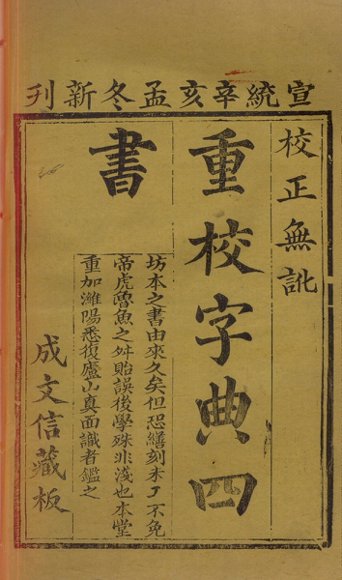 宣統辛亥孟冬新刊
校正無訛
重校字典四
書
坊本之書由來久矣但恐繕刻未了不免
帝虎魯魚之舛貽誤後學殊非淺也本堂
重加濰陽悉復廬山真面識者鑑之
成文信藏板